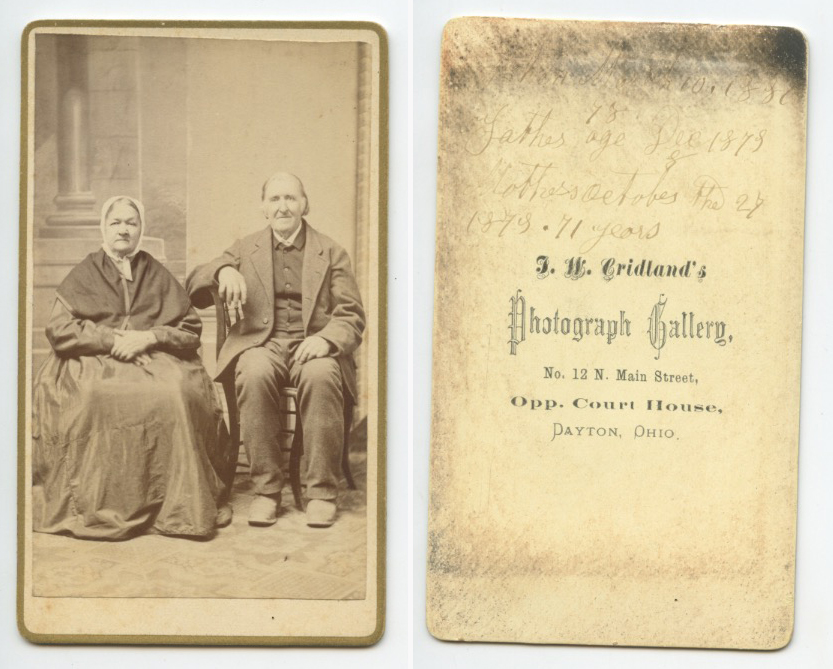 10. 188
78
Father age Dec 1879
&
Mothers October the 27
1879. 71 years
T. W. Cridland's
Photograph Gallery,
No. 12 N. Main Street,
Opp. Court House,
DAYTON, OHIO.